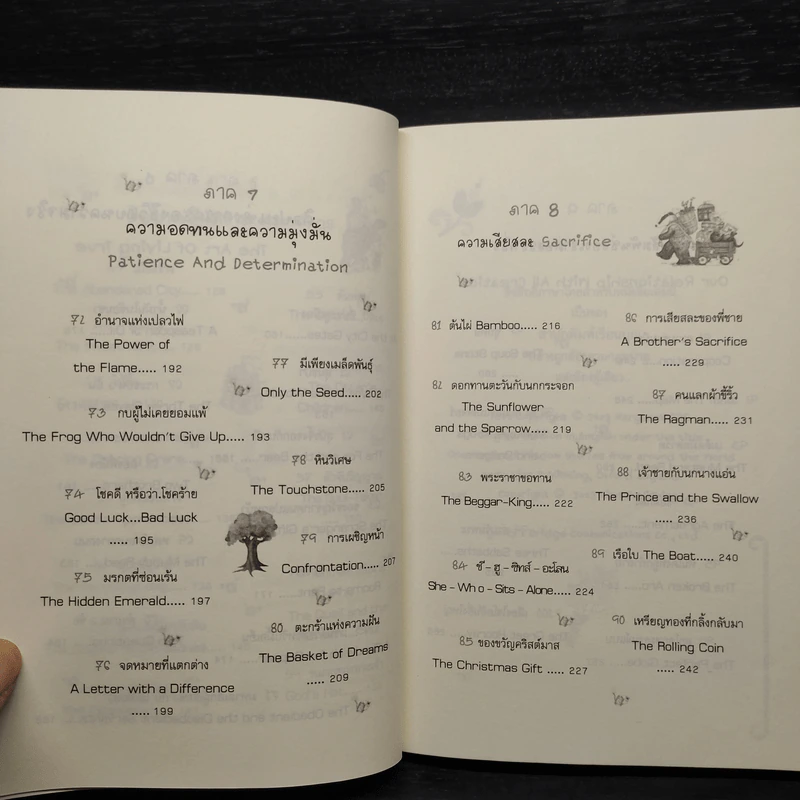 ภาค 7
ความอดทนและความมุ่งมั่น
Patience And Determination
72 อำนาจแห่งเปลวไฟ
The Power of
the Flame..... 192
73 กบผู้ไม่เคยยอมแพ้
The Frog Who Wouldn't Give Up..... 193
74 โชคดี หรือว่า..โชคร้าย
Good Luck...Bad Luck
..... 195
75 มรกตที่ซ่อนเร้น
The Hidden Emerald..... 197
76 จดหมายที่แตกต่าง
A Letter with a Difference
..... 199
77 มีเพียงเมล็ดพันธุ์
Only the Seed..... 202
78 หินวิเศษ
The Touchstone..... 205
79 การเผชิญหน้า
Confrontation..... 207
80 ตะกร้าแห่งความฝัน
The Basket of Dreams
..... 209
ภาค 8
ความเสียสละ Sacrifice
81 ต้นไผ่ Bamboo..... 216
82 ดอกทานตะวันกับนกกระจอก
The Sunflower
and the Sparrow..... 219
83 พระราชาขอทาน
The Beggar-King..... 222
84 ชี - ฮู - ซิทส์ - อะโลน
She - Who - Sits - Alone..... 224
85 ของขวัญคริสต์มาส
The Christmas Gift ..... 227
86 การเสียสละของพี่ชาย
A Brother's Sacrifice
..... 229
87 คนแลกผ้าขี้ริ้ว
The Ragman..... 231
88 เจ้าชายกับนกนางแอ่น
The Prince and the Swallow
..... 236
89 เรือใบ The Boat..... 240
90 เหรียญทองที่กลิ้งกลับมา
The Rolling Coin
..... 242